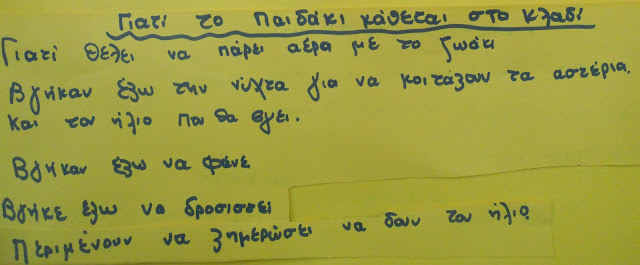 Γιατί το παιδάκι κάθεται στο κλαδί
Γιατί θέλει να πάρει αέρα με το ζωάκι
Βγήκαν έξω την νύχτα για να κοιτάξουν τα αστέρια.
και τον ήλιο που θα βγει.
Βγήκαν έξω να φάνε
Βγήκε έξω να δροσισσεί
Περιμένουν να ξημερώσει να δουν τον ήλιο